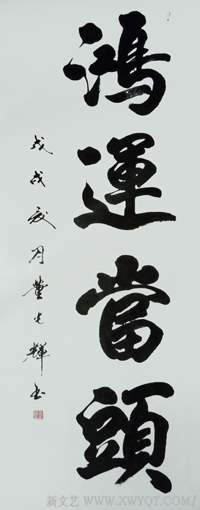 鴻運當頭
戊戌夏月董光輝书
新文艺 WWW.XWYQT.COM